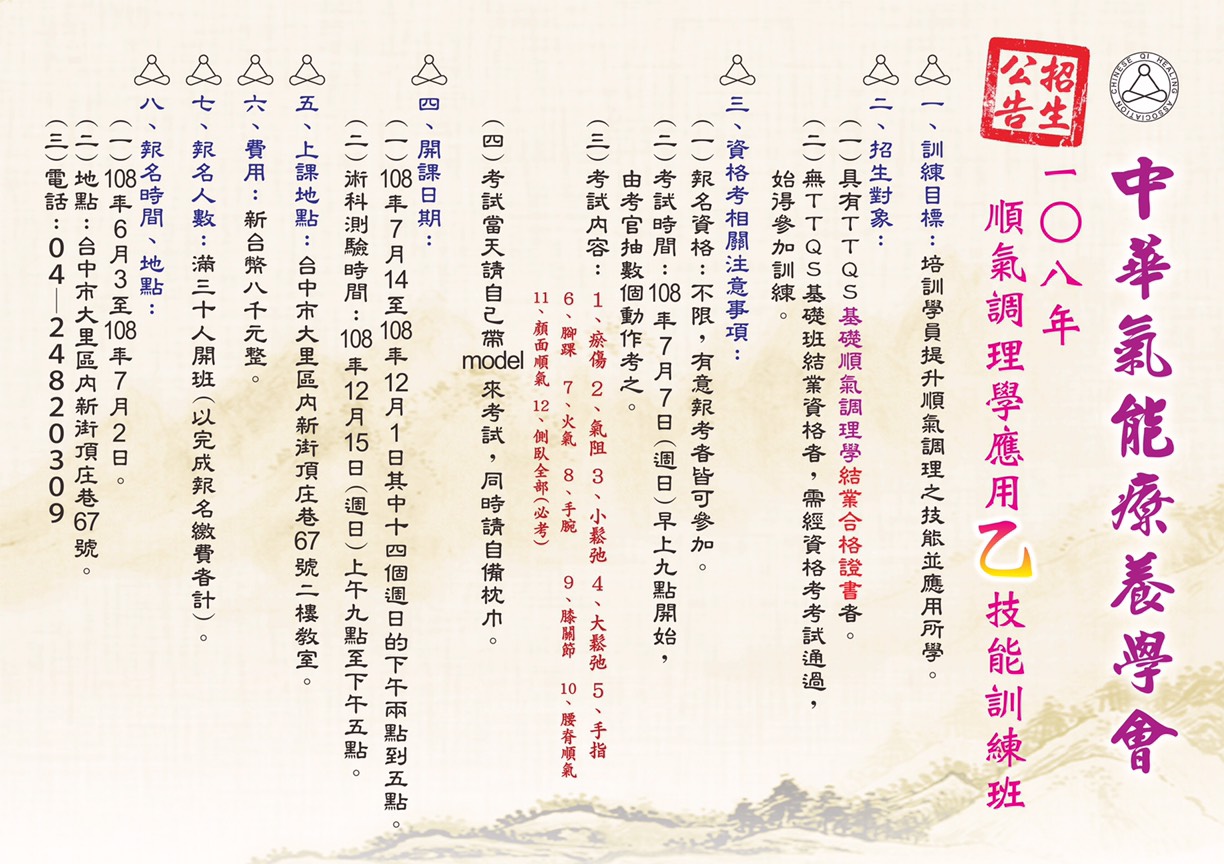 CHINESE QI HEALING ASSOCIATION
中華氣能療養學會
招生
公告
一〇八年
順氣調理學應用乙技能訓練班
一、訓練目標：培訓學員提升順氣調理之技能並應用所學。
二、招生對象：
（一）具有ＴＴＱＳ基礎順氣調理學結業合格證書者。
（二）無ＴＴＱＳ基礎班結業資格者，需經資格考考試通過，
始得參加訓練。
三、資格考相關注意事項：
（一）報名資格：不限，有意報考者皆可參加。
（二）考試時間：108年7月7日（週日）早上九點開始，
由考官抽數個動作考之。
（三）考試內容：
1、瘀傷 2、氣阻 3、小鬆弛 4、大鬆弛 5、手指
6、腳踝 7、火氣 8、手腕 9、膝關節 10、腰脊順氣
11、顏面順氣 12、側臥全部（必考）
（四）考試當天請自己帶model來考試，同時請自備枕巾。
四、開課日期：
（一）108年7月14至108年12月1日其中十四個週日的下午兩點到五點。
（二）術科測驗時間：108年12月15日（週日）上午九點至下午五點。
五、上課地點：台中市大里區內新街頂庄巷67號二樓教室。
六、費用：新台幣八千元整。
七、報名人數：滿三十人開班（以完成報名繳費者計）。
八、報名時間、地點：
（一）108年6月3至108年7月2日。
（二）地點：台中市大里區內新街頂庄巷67號。
（三）電話：04—24820309